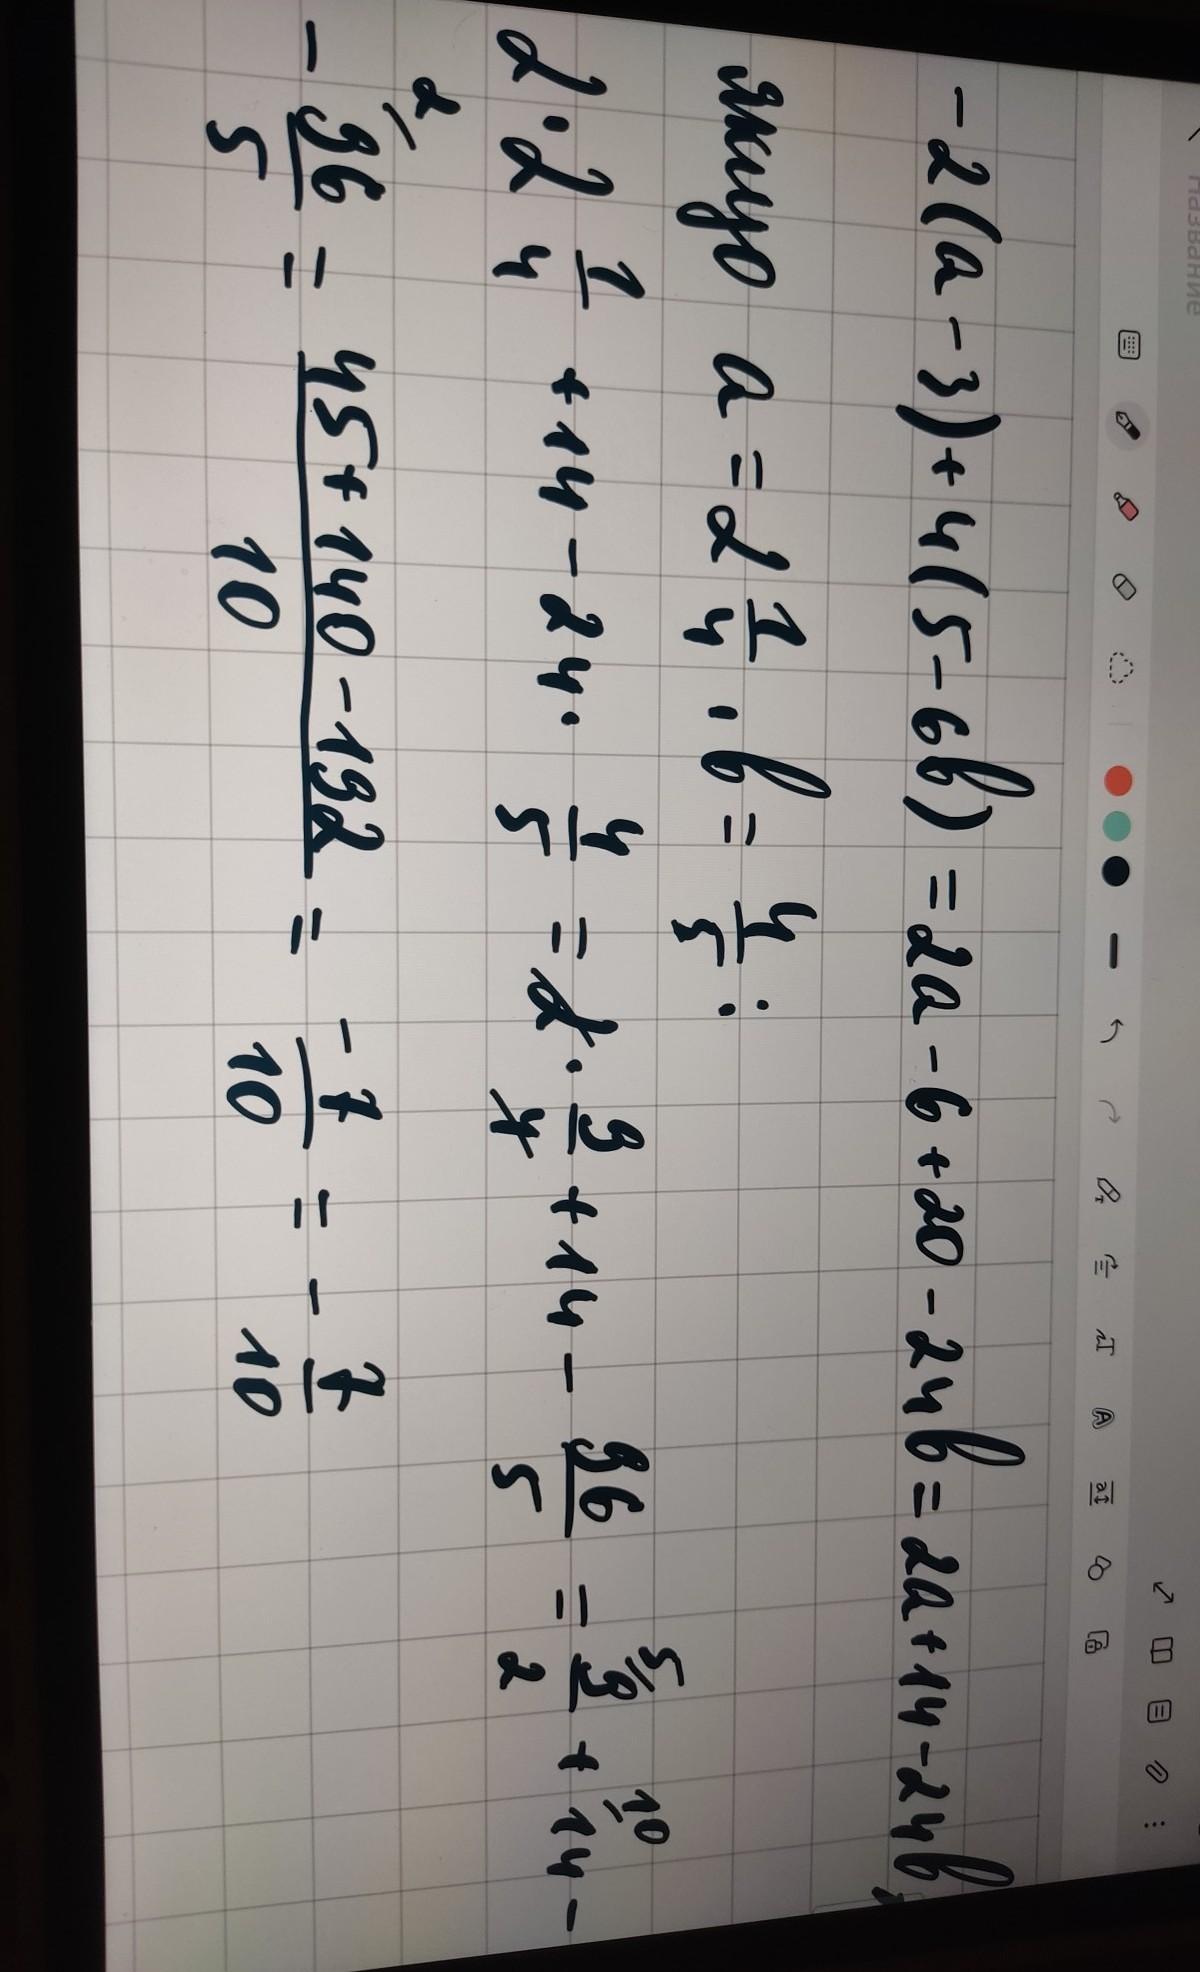 Название
-2(a-3)+4(5-6b)=2a-6+20-24b=2a+14-24b,
якщо a=2 1/4, b=4/5:
2·2 1/4 +14-24·4/5=2·9/4+14-96/5=9/2 5/+14 10/-
-96/5 2/=45+140-192/10=-7/10=-7/10